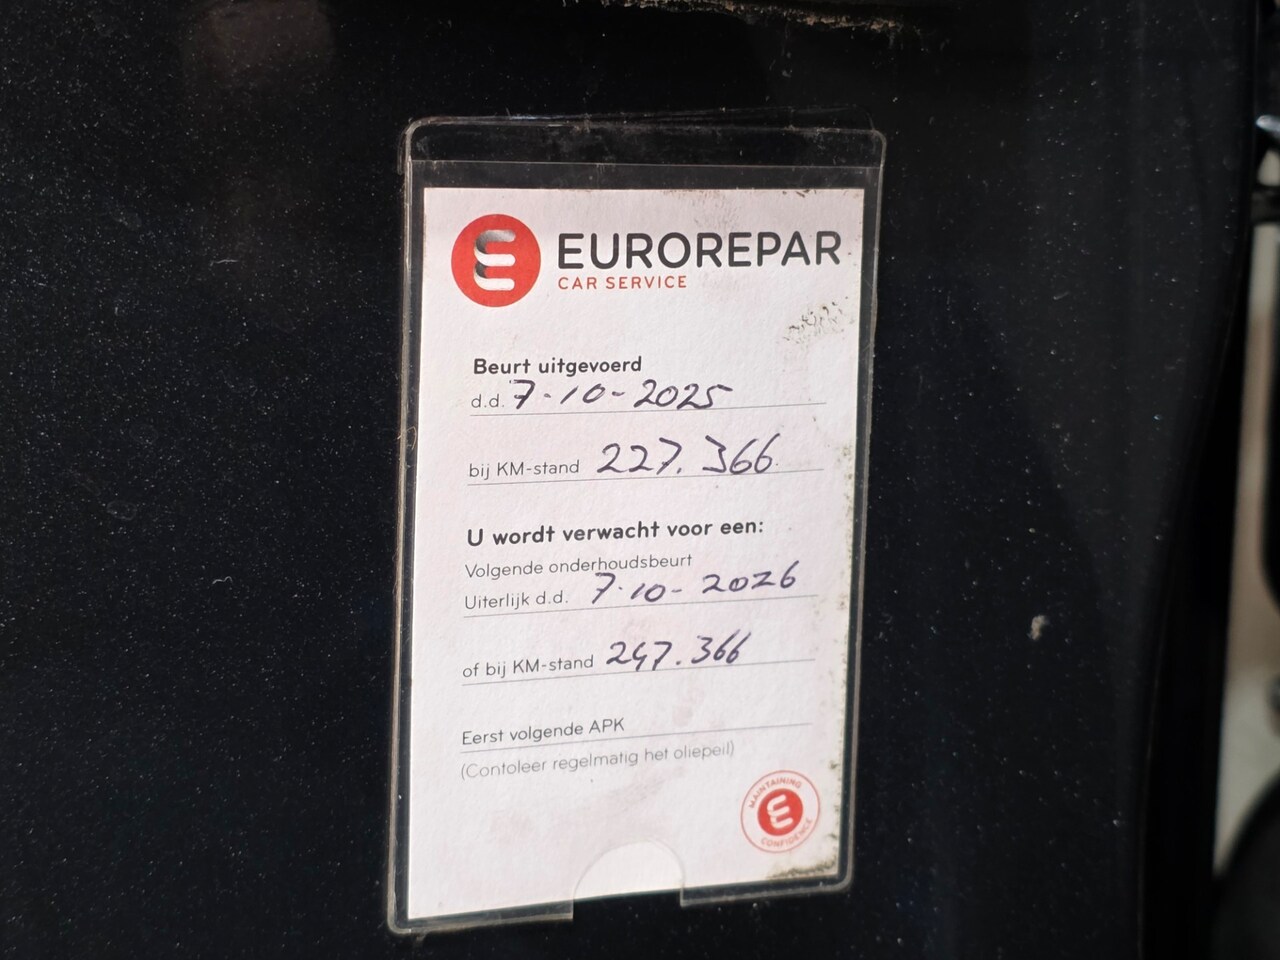 EUROREPAR
CAR SERVICE
Beurt uitgevoerd
d.d. 7-10-2025
bij KM-stand 227.366
U wordt verwacht voor een:
Volgende onderhoudsbeurt
Uiterlijk d.d. 7-10-2026
of bij KM-stand 247.366
Eerst volgende APK
(Contoleer regelmatig het oliepeil)
MAINTAINING
CONFIDENCE